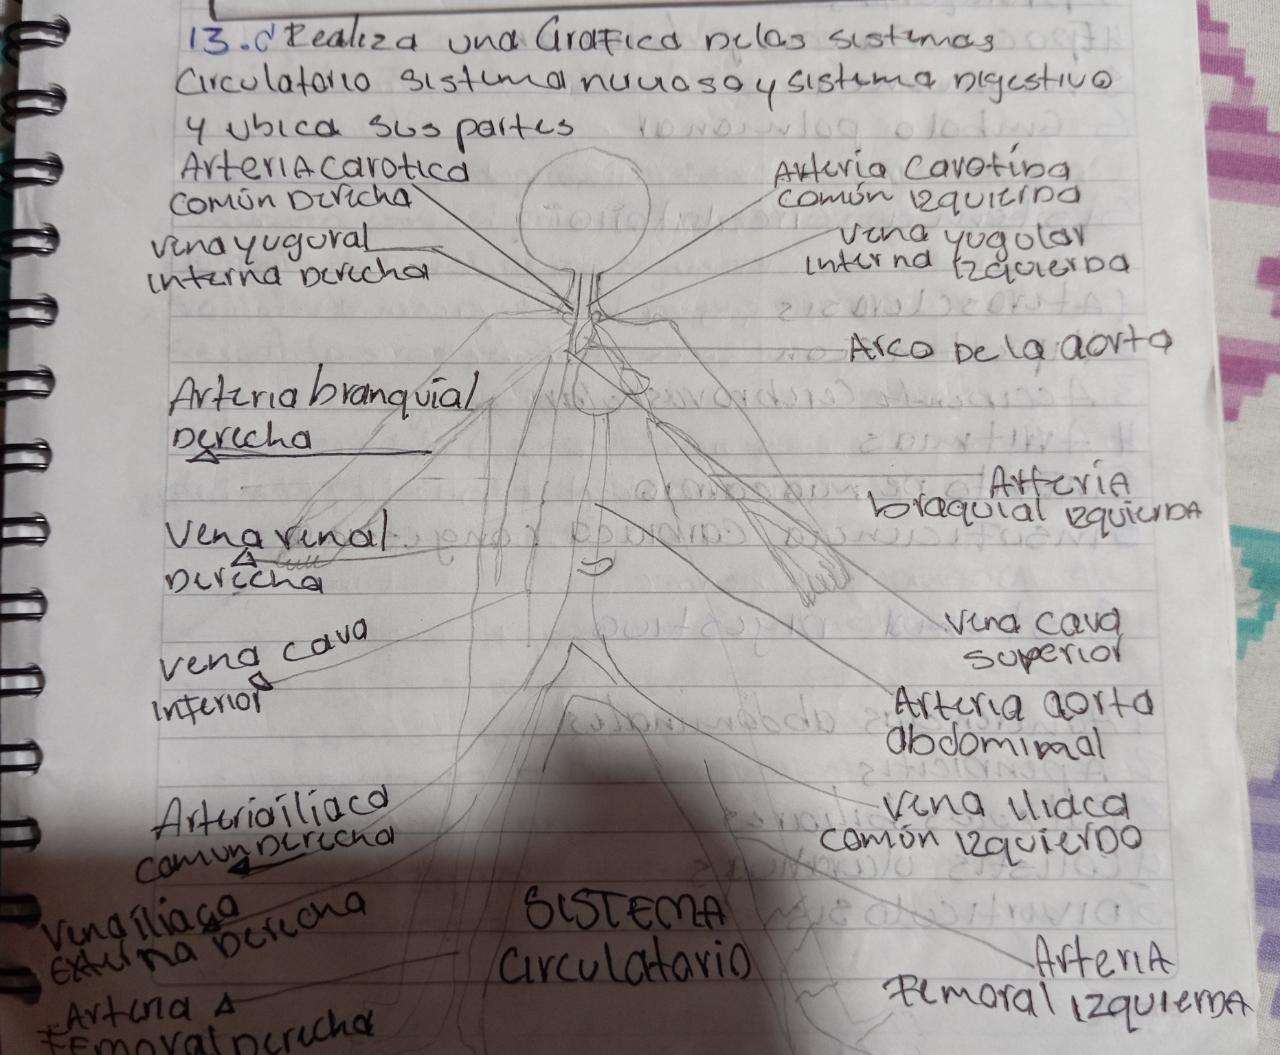 13. Realiza una Grafica Delos sistemas
Circulatorio sistema nervioso y sistema Digestivo
y ubica sus partes
Arteria carotica
común Derecha
Arteria Carotina
común Izquierda
vena yugural
interna Derecha
vena yugolar
interna Izquierda
Arco De la aorta
Arteria branquial
Derecha
Arteria
braquial izquierda
Vena renal
Derecha
vena cava
inferior
vena cava
superior
Arteria aorta
abdomimal
Arteria iliaca
comun Derecha
vena iliaca
común izquierdo
vena iliaca
externa Derecha
SISTEMA
circulatario
Arteria
Femoral izquierda
Arteria
Femoral Derecha